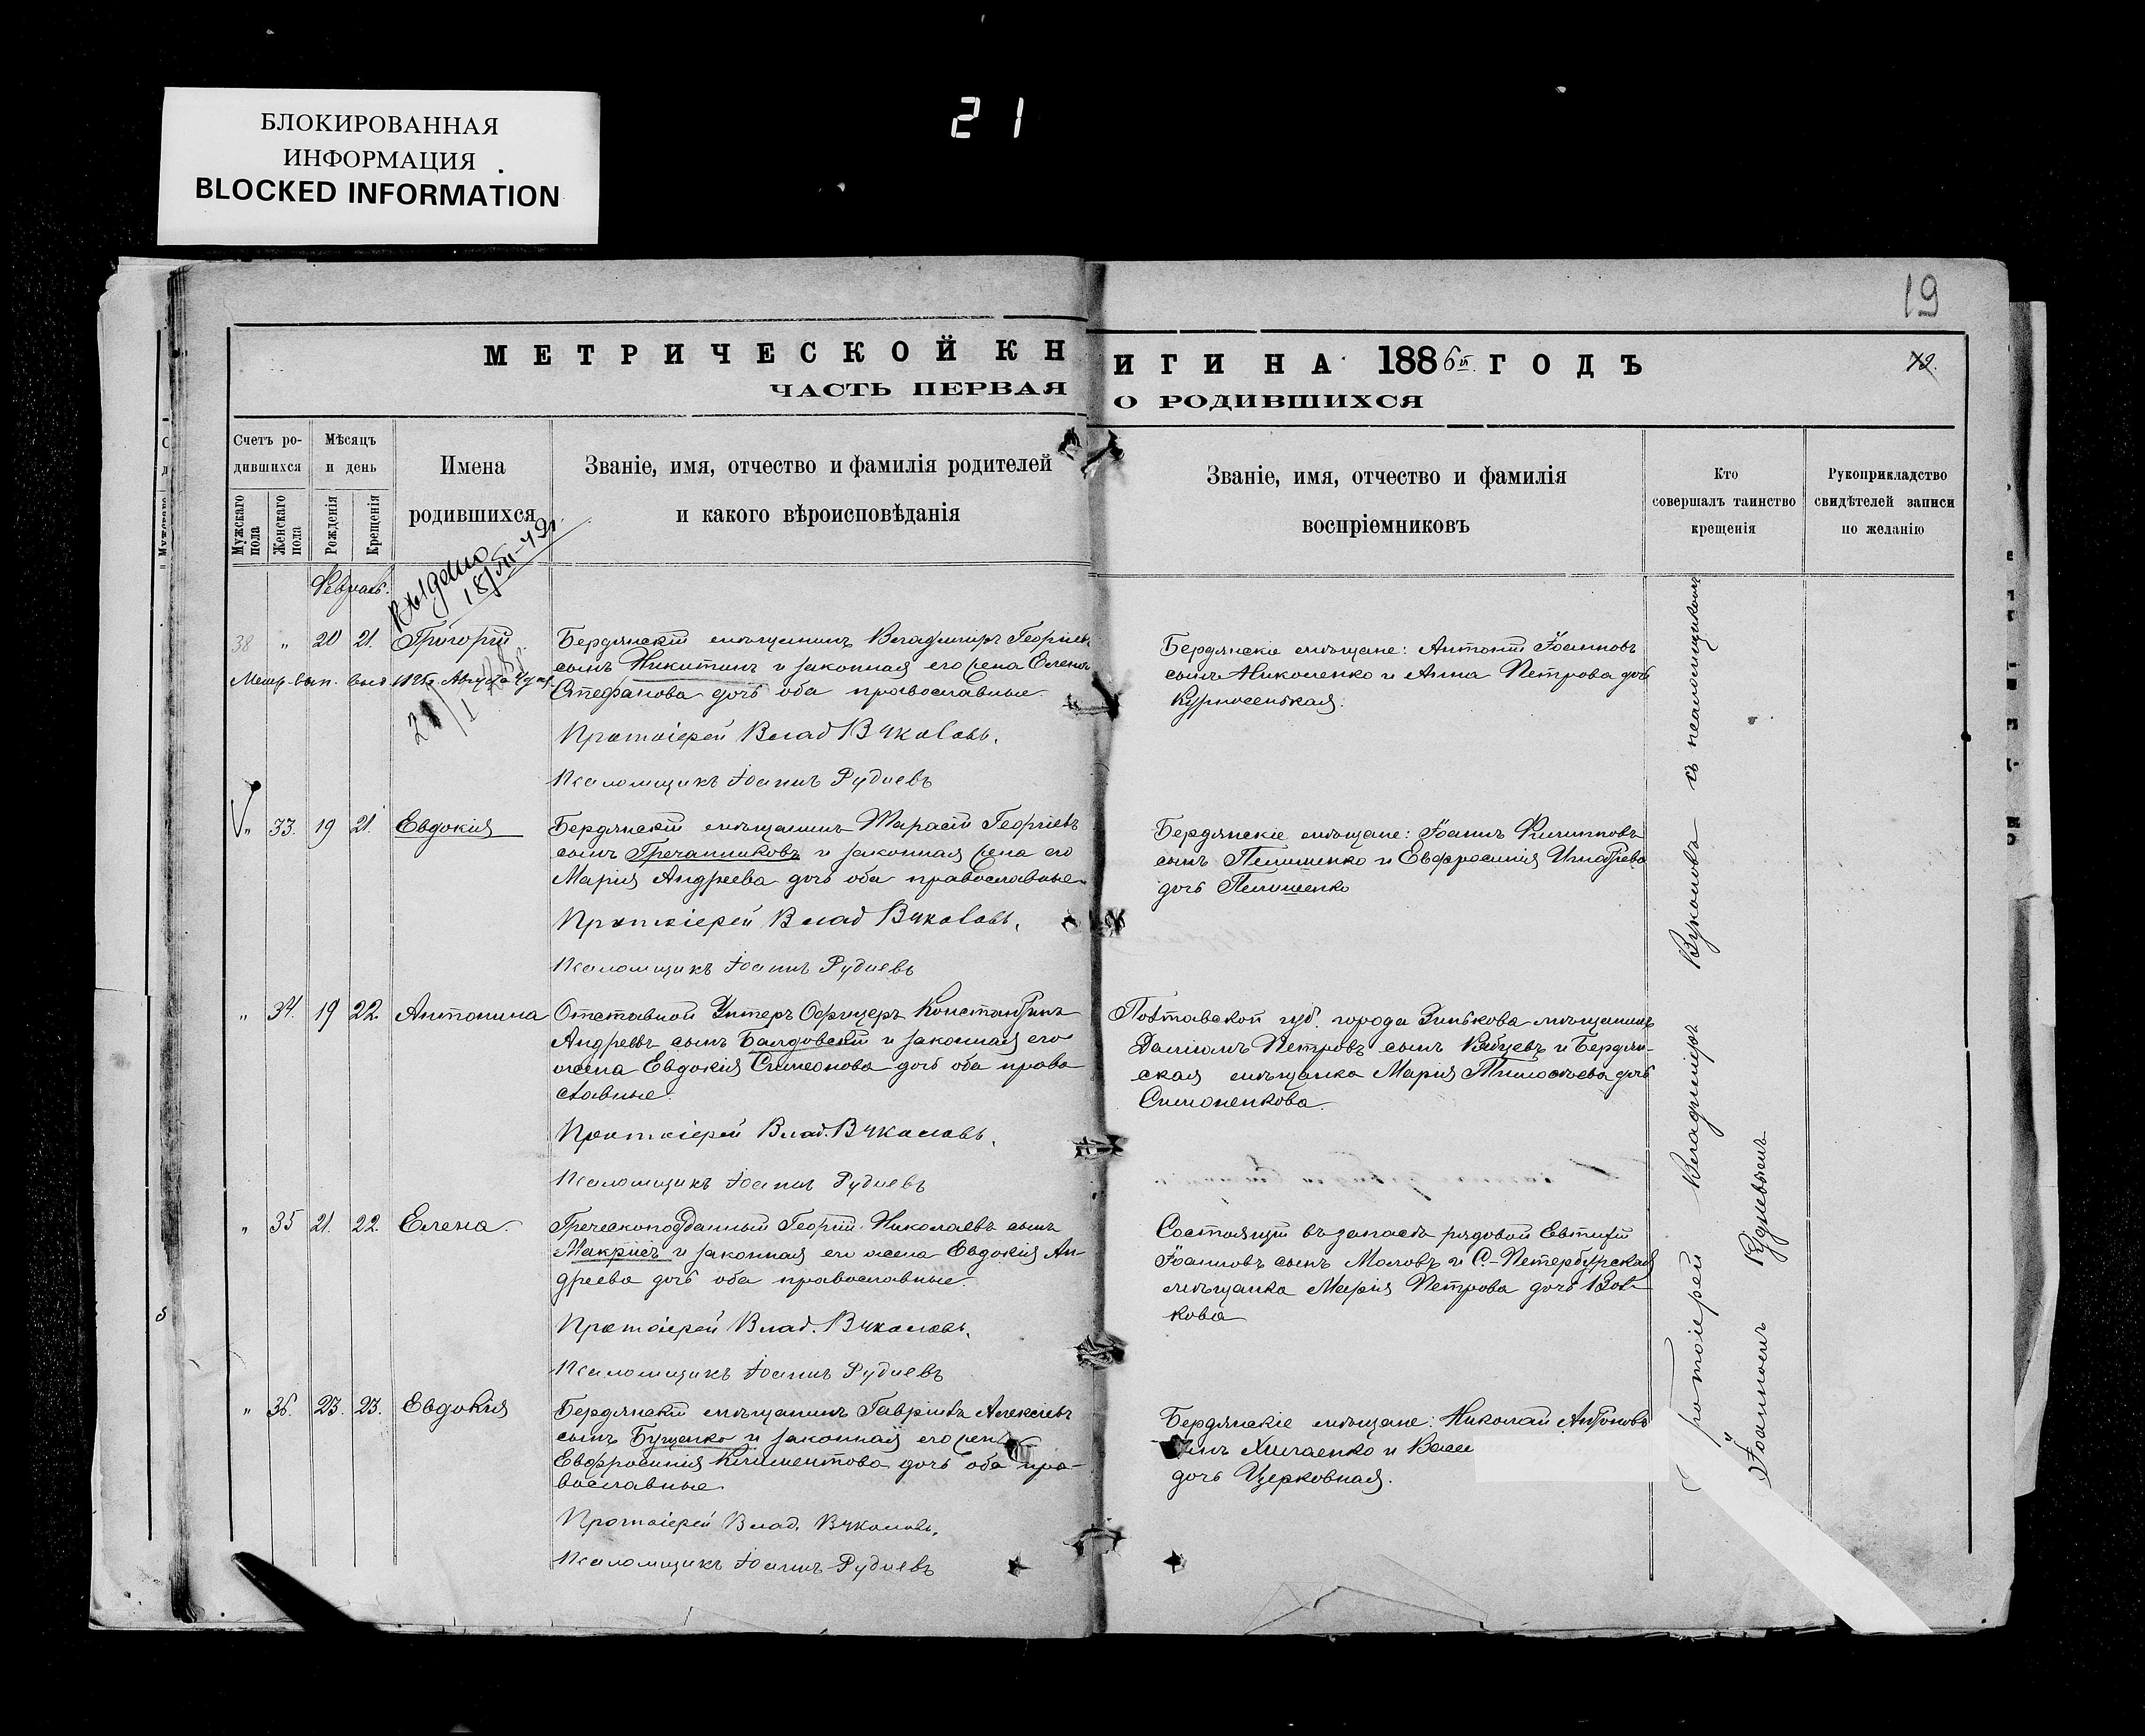 БЛОКИРОВАННАЯ
ИНФОРМАЦИЯ
BLOCKED INFORMATION
21
19
МЕТРИЧЕСКОЙ КНИГИ НА 1886й ГОДЪ
19.
ЧАСТЬ ПЕРВАЯ О РОДИВШИХСЯ
Счетъ ро-
дившихся
Мѣсяцъ
и день
Мужскаго пола
Женскаго пола
Рожденія
Крещенія
Имена
родившихся
Званіе, имя, отчество и фамилія родителей
и какого вѣроисповѣданія
Званіе, имя, отчество и фамилія
воспріемниковъ
Кто
совершалъ таинство
крещенія
Рукоприкладство
свидѣтелей записи
по желанію
Февраль.
Выдано
38 " 20 21. Григорій
Бердянскій мѣщанинъ Владиміръ Георгіевъ
сынъ Никитинъ и законная его жена Елена
Стефанова дочь оба православные.
Протоіерей Влад Вуколовъ.
Псаломщикъ Іоаннъ Рудневъ
Бердянскіе мѣщане: Антоній Іоанновъ
сынъ Николенко и Анна Петрова дочь
" 33. 19 21. Евдокія
Бердянскій мѣщанинъ Тарасій Георгіевъ
сынъ Гречанниковъ и законная жена его
Марія Андреева дочь оба православные.
Протоіерей Влад Вуколовъ.
Псаломщикъ Іоаннъ Рудневъ
Бердянскіе мѣщане: Іоаннъ Филипповъ
сынъ Пелишенко и Евфросинія Игнатіева
дочь Пелишенко
" 34. 19 22. Антонина
Отставной Унтеръ Офицеръ Константинъ
Андреевъ сынъ Балдовскій и законная его
жена Евдокія Симеонова дочь оба право
славные.
Протоіерей Влад. Вуколовъ.
Псаломщикъ Іоаннъ Рудневъ
Полтавской губ. города Зинькова мѣщанинъ
Даніилъ Петровъ сынъ и Бердян-
ская мѣщанка Марія Тимофѣева дочь
Симоненкова.
" 35 21. 22. Елена.
Греческоподданный Георгій Николаевъ сынъ
Макрисъ и законная его жена Евдокія Ан-
дреева дочь оба православные.
Протоіерей Влад. Вуколовъ.
Псаломщикъ Іоаннъ Рудневъ
Состоящій въ запасѣ рядовой Евтихій
Іоанновъ сынъ Маловъ и С.-Петербургская
мѣщанка Марія Петрова дочь Вол-
кова
" 36. 23. 23. Евдокія
Бердянскій мѣщанинъ Гавріилъ Алексіевъ
сынъ Бущенко и законная его жена
Евфросинія Климентова дочь оба пра-
вославные.
Протоіерей Влад. Вуколовъ.
Псаломщикъ Іоаннъ Рудневъ
Бердянскіе мѣщане: Николай Антоновъ
дочь Церковная.
Протоіерей Владиміръ Вуколовъ съ псаломщикомъ
Іоанномъ Рудневымъ